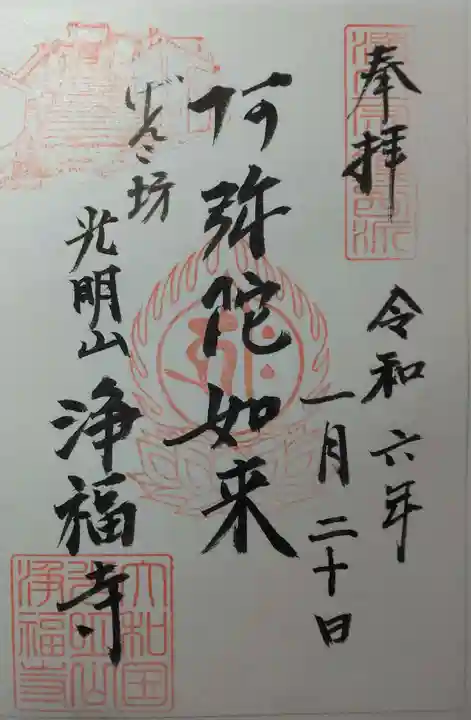 奉拝
令和六年
一月二十日
阿弥陀如来
光明山
浄福寺
大和国
光明山
浄福寺